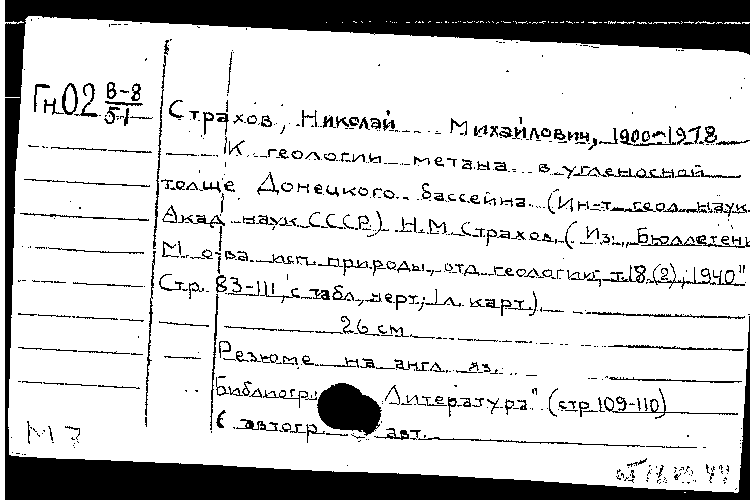 Гн02 В-8/51
Страхов, Николай Михайлович, 1900-1978
К геологии метана в угленосной
толще Донецкого бассейна (Ин-т геол. наук
Акад. наук СССР) Н.М. Страхов. (Из „Бюллетени
М. о-ва исп. природы, отд. геологии, т.18.(2), 1940"
Стр. 83-111, с табл, черт; 1 л. карт.).
26 см.
Резюме на англ яз.
Библиогр: Литература" (стр. 109-110)
С автогр. авт.
М 7